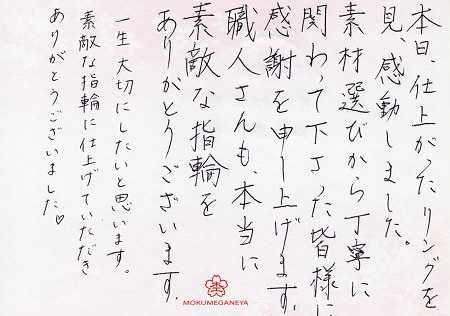 本日、仕上がったリングを
見、感動しました。
素材選びから丁寧に
関わって下さった皆様に
感謝を申し上げます。
職人さんも、本当に
素敵な指輪を
ありがとうございます。
一生大切にしたいと思います。
素敵な指輪に仕上げていただき
ありがとうございました♡
MOKUMEGANEYA